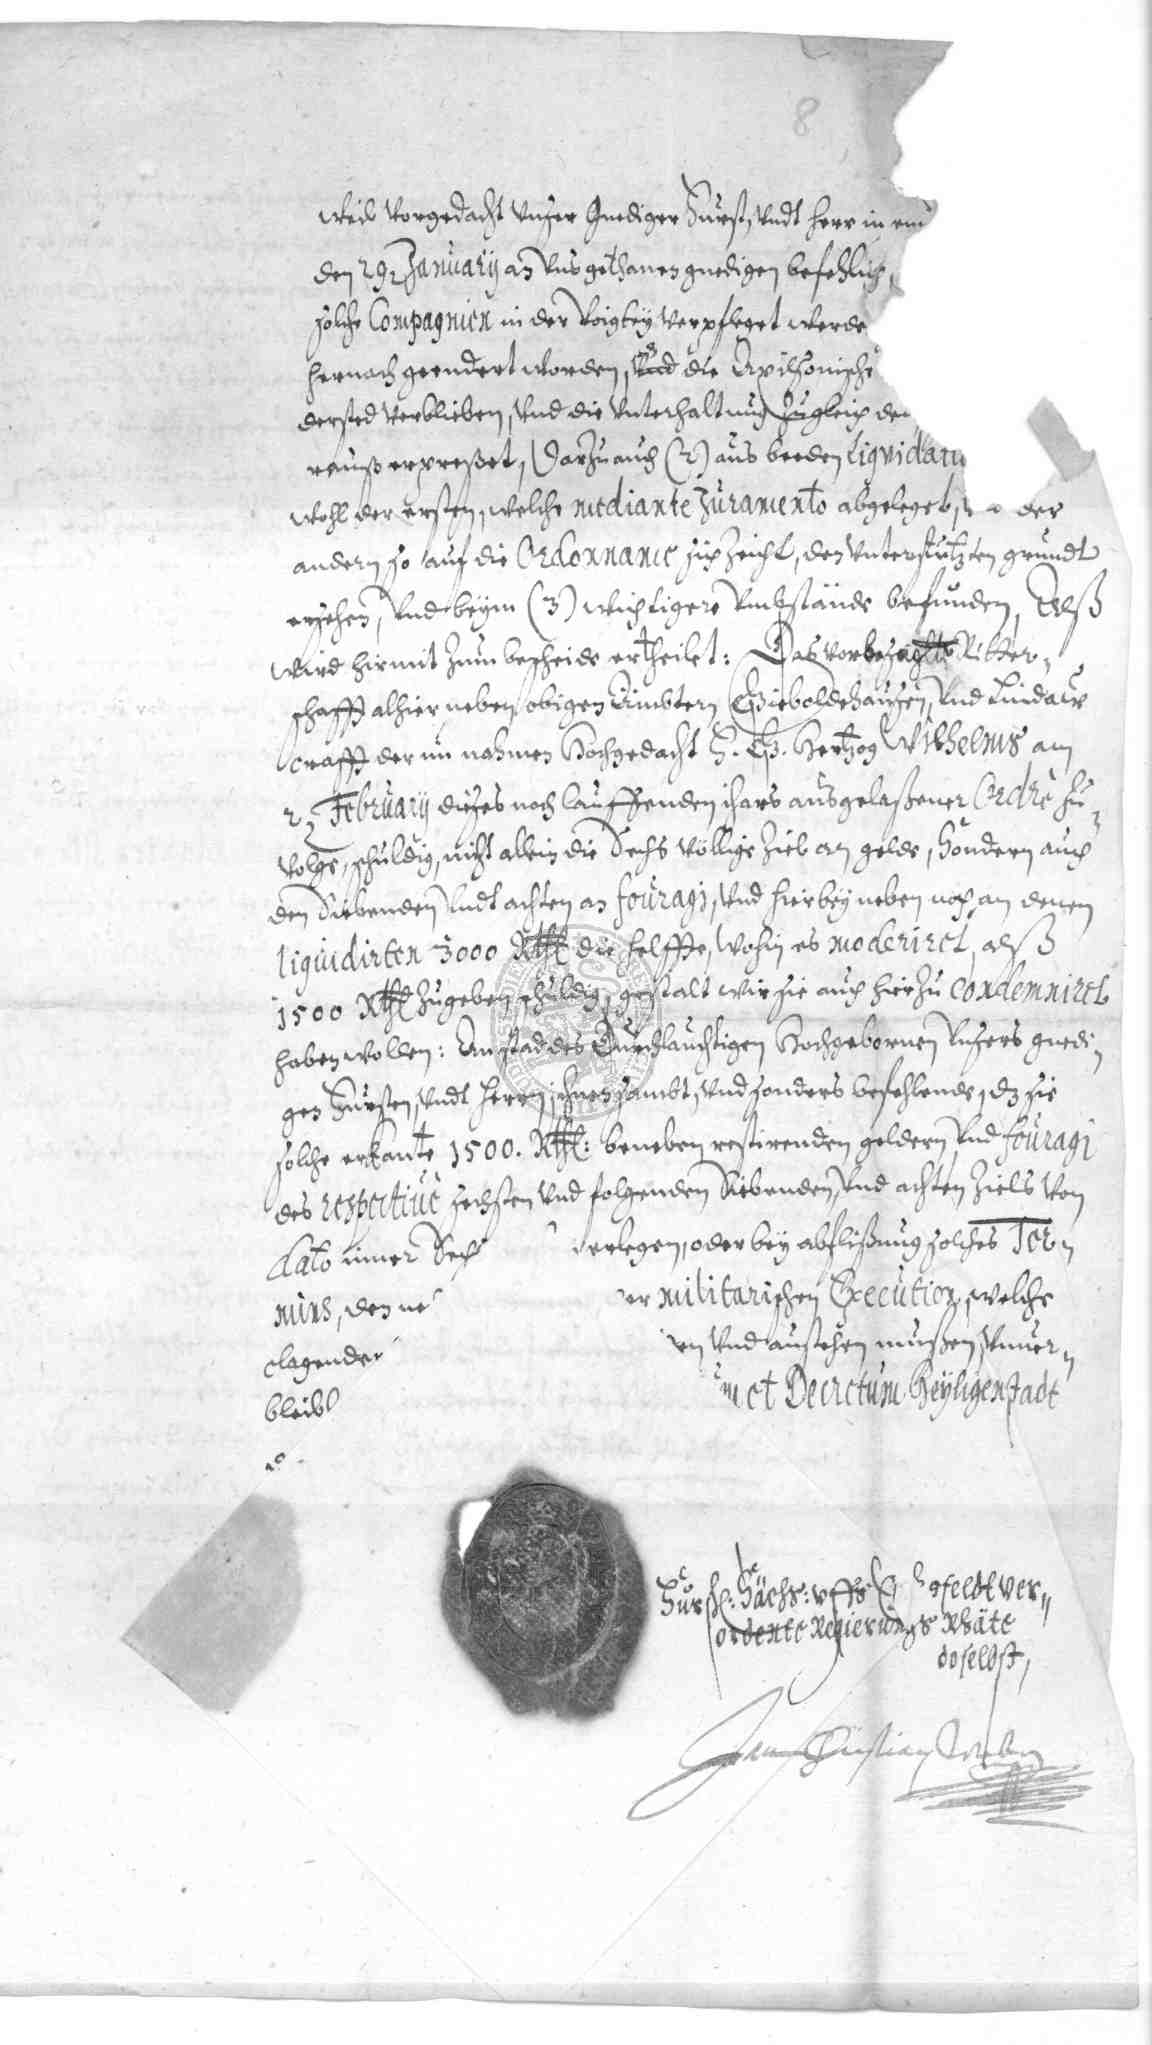 8
Weil Vorgedacht Unser Gnediger Fürst, Undt Herr in
den 29. January an Uns gethanen gnedigen befehlich,
solche Compagnien in der Voigtey Verpfleget werde
hernach geendert worden, Und die Axilsonische
dersted verblieben, Und die Unterhaltung zugleich
rauß erpreßet, Darzu auch (2) aus beeden liquidatio
wohl der ersten, welche mediante Juramento abgeleget, der
andern so auf die Ordonnance sich zeicht, den Unterstützten grundt
ersehen, Und beym (3) wichtigere Umbstände befunden, Alß
wird hirmit zum bescheide ertheilet: Das vorbesagte Ritter-
schafft alhier, neben obigen Ämbtern Gieboldehausen, Und Lindaw
crafft der im nahmen Hochgedacht S. G. Hertzog Wilhelms am
2. February dieses noch lauffenden ihars ausgelaßener Ordre zu
Volge, schuldig, nicht allein die Sechs völlige Ziel an gelde, Sondern auch
den Siebenden Undt achten an fouragi, Und hierbey neben noch an denen
liquidirten 3000 Rthl die helffte, wohin es moderiret, alß
1500 Rthl zugeben schuldig, gestalt wir sie auch hierzu condemniret
haben wollen: An stad des Durchlauchtigen Hochgebornen Unsers gnedi-
gen Fürsten, Undt Herrn, ihnen sambt, Und sonders befehlende, dz sie
solche erkante 1500. Rthl: beneben restirenden geldern Und fouragi
des respective sechsten Und folgenden Siebenden, Und achten Ziels Von
dato inner Sech erlegen, oder bey abflißung solches Ter-
mins, den ne er militarischen Execution, welche
clagende en Und ausstehen mußen, Unver-
bleibl m et Decretum Heyligenstadt
Fürstl: Sächs: uffs feldt ver-
ordente Regierungs Rhäte
doselbst,